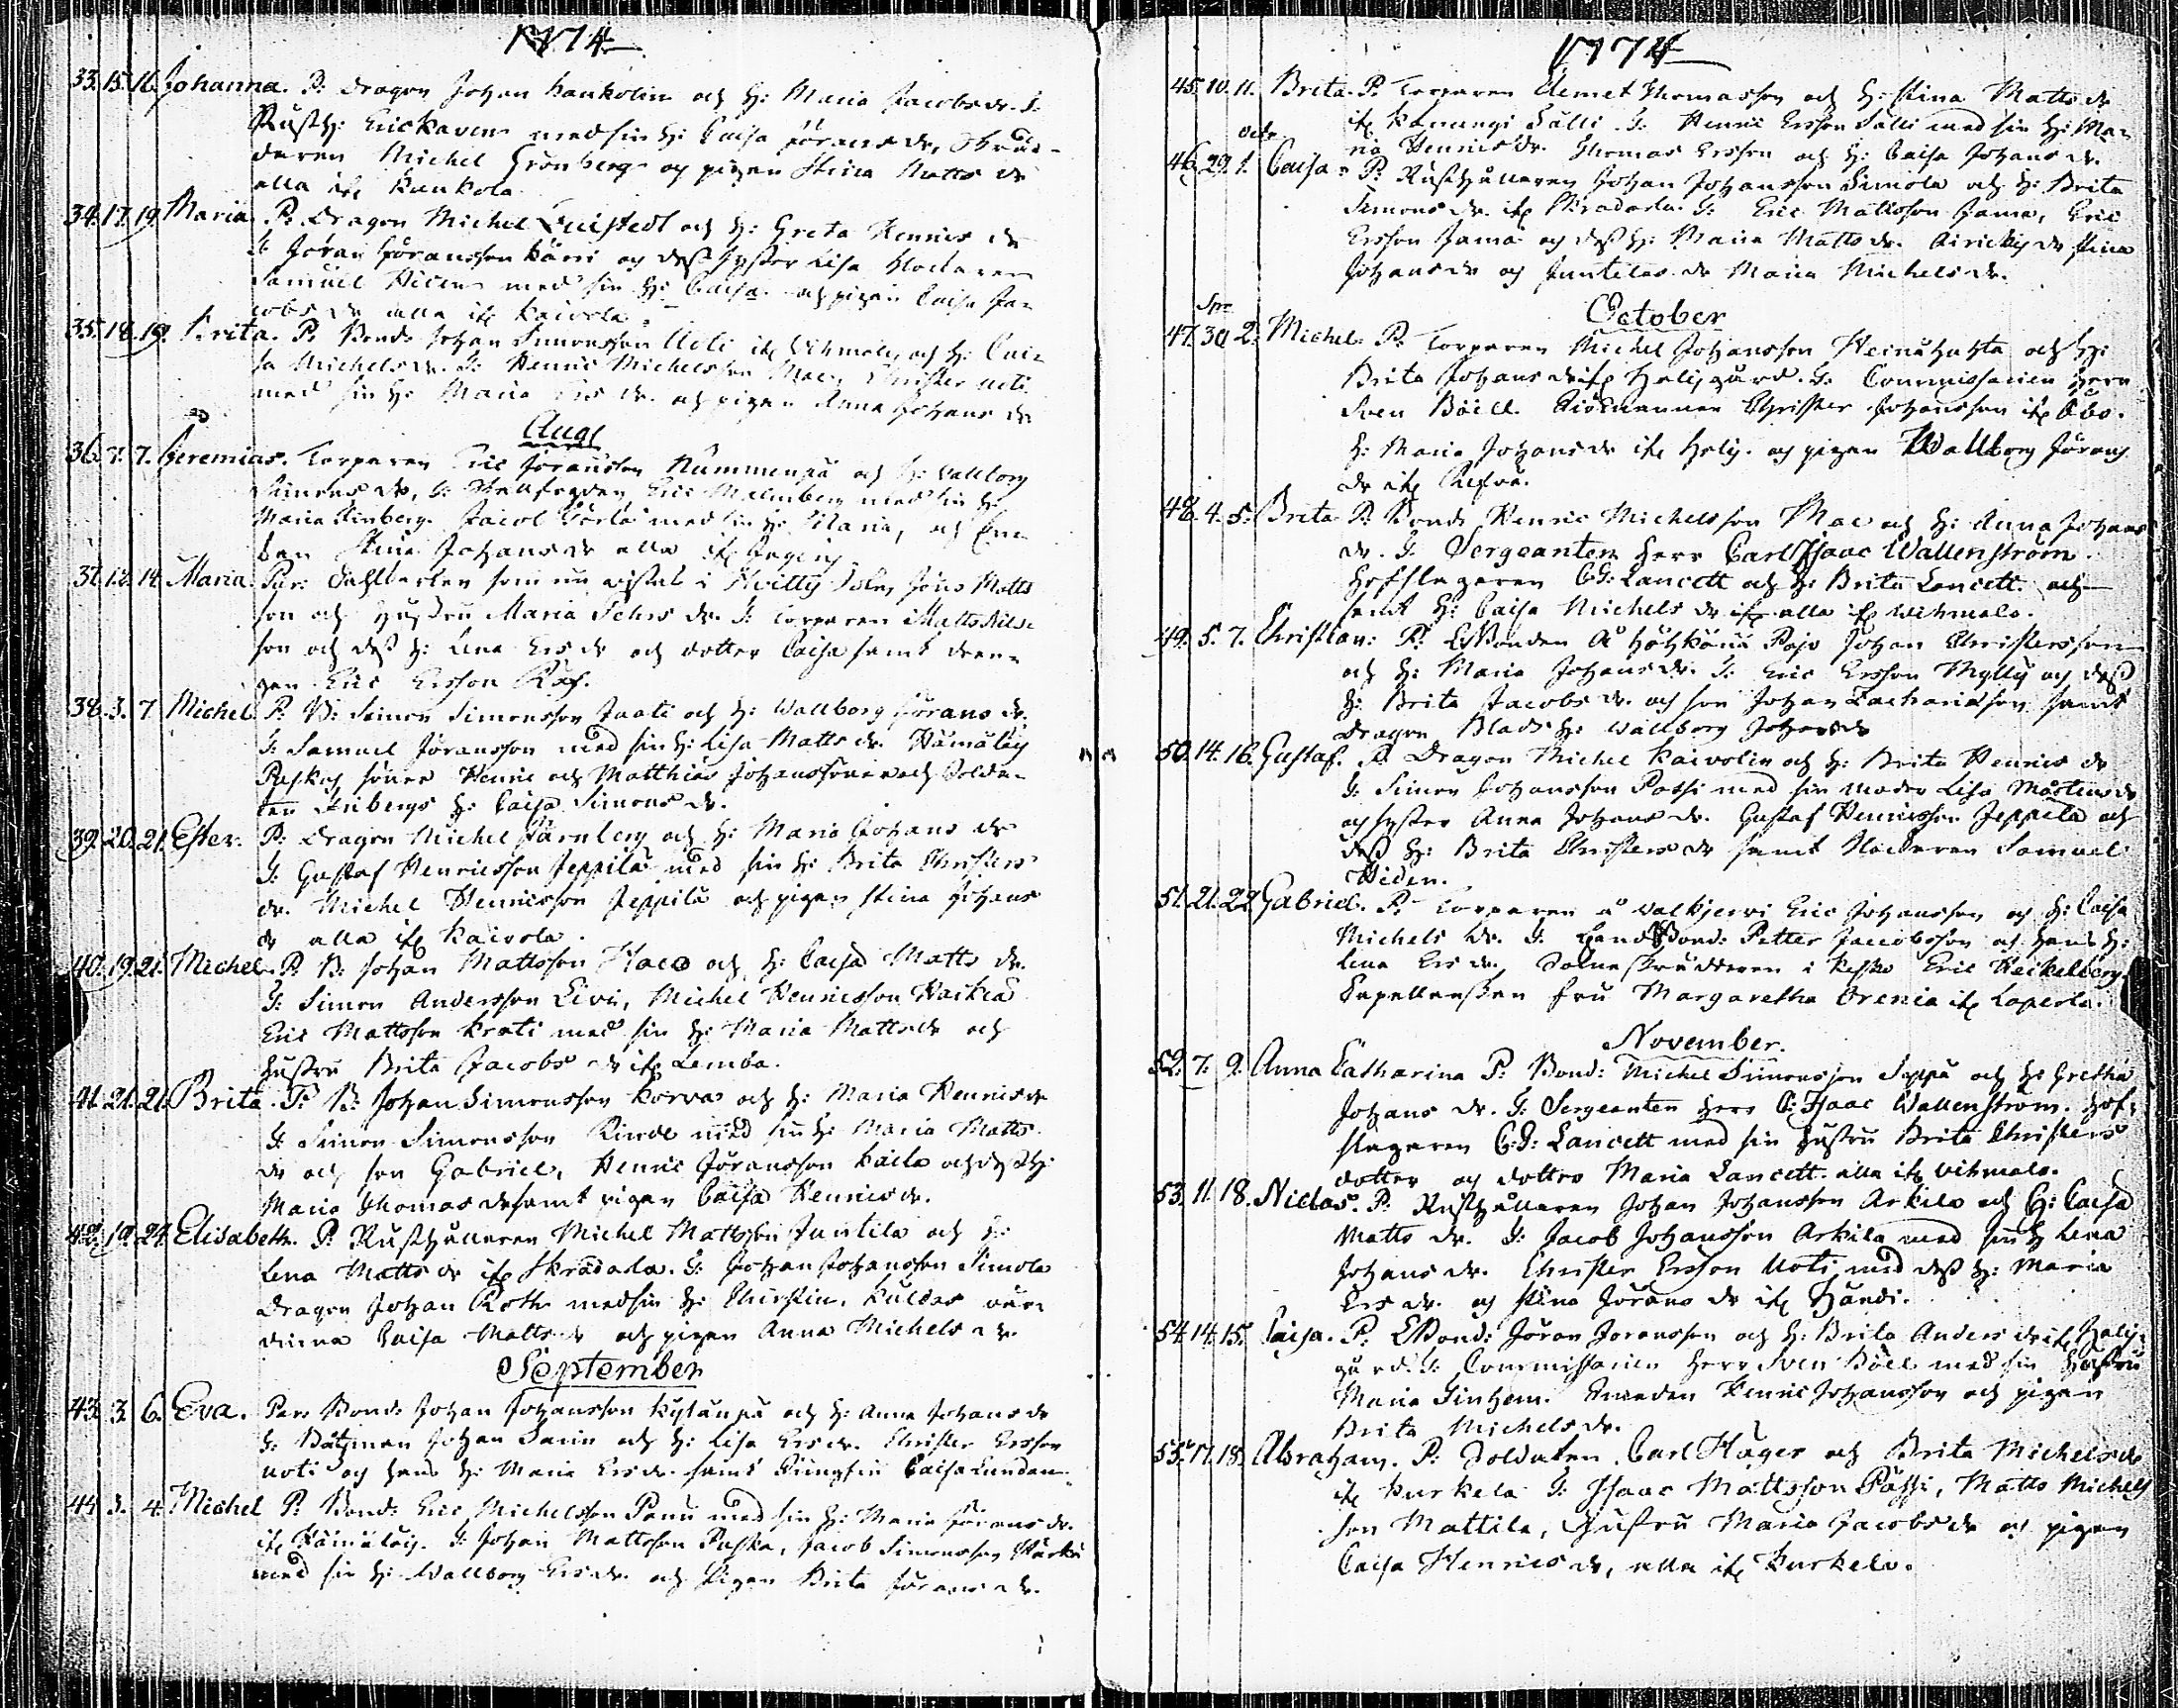 1774
33. 15. 16. Johanna. P: Dragon Johan Kankolin och H: Maria Jacobs dr. F:
Rusth: Eric Kaven med sin H: Caisa Jörans dr, Skräd-
daren Michel Grönberg og pigan Stina Matts dr
alla if. Kankola
34. 17. 19. Maria. P: Dragon Michel Qvistedt och H: Greta Henrics dr
F: Jöran Jöransson Käns og dess syster Lisa Klockaren
Samuel Hiden med sin H: Caisa och pigan Caisa Ja-
cobs dr alla if. Kaivola
35. 18. 19. Brita. P: Bond: Johan Simonsson Uoti if. Vihmalo, och H: Cai-
sa Michels dr. F: Henric Michelsson Mae, Christer Uoti
med sin H: Maria Ers dr. och pigan Anna Johans dr
Aug
36. 7. 7. Jeremias. Torparen Eric Jöransson Nummenpä och H: Wallborg
Simons dr, F: Eric Malmberg med sin H:
Maria Finberg. Jacob med sin H: Maria, och
Stina Johans dr alla if.
37. 12. 14. Maria. Par: som nu vistas i Jöns Matts
son och hustru Maria dr. F: Torparen Matts Nils-
son och dess H: Lena Ers dr och dotter Caisa samt dren-
gen Eric Ersson
38. 3. 7 Michel P: B: Simon Simonsson Jaati och H: Wallborg Jörans dr.
F: Samuel Jöransson med sin H: Lisa Matts dr. Hämäläis
söner Henric och Matthias Johanssöner och Solda-
ten Finbergs H: Caisa Simons dr.
39. 20. 21. Ester. P: Dragon Michel Järnberg och H: Maria Johans dr
F: Gustaf Henricsson Jeppilä med sin H: Brita Christers
dr. Michel Henricsson Jeppilä och pigan Stina Johans
dr alla if. Kaivola.
40. 19. 21. Michel. P: B: Johan Mattsson och H: Caisa Matts dr.
F: Simon Andersson Livi, Michel Henricsson Haikea
Eric Mattsson Krati med sin H: Maria Matts dr och
hustru Brita Jacobs dr if. Lemba.
41. 21. 21. Brita. P: B: Johan Simonsson Korvas och H: Maria Henrics dr
F: Simon Simonsson med sin H: Maria Matts
dr och son Gabriel, Henric Jöransson Kaila och dess H:
Maria Thomas dr samt pigan Caisa Henrics dr.
42. 19. 24. Elisabeth. P: Rusthållaren Michel Mattsson Juntila och H:
Lena Matts dr if. Skradarla. F: Johan Johansson Simola
Dragon Johan Roth med sin H: Christin, Kuldas vär-
dinna Caisa Matts dr och pigan Anna Michels dr
September
43. 3. 6. Eva. Par: Bond: Johan Johansson Kylänpä och H: Anna Johans dr
F: Båtzman Johan Sarin och H: Lisa Ers dr. Christer Ersson
Uoti og hans H: Maria Ers dr. samt Jungfru Caisa Lundan.
44. 3. 4. Michel P: Bond: Eric Michelsson Panu med sin H: Maria Jörans dr.
if. Hämäläis. F: Johan Mattsson Paska, Jacob Simonsson
med sin H: Wallborg Ers dr. och Pigan Brita Jörans dr.
1774
45. 10. 11. Brita. P: Torparen Clemet Thomasson och H: Stina Matts dr
if. Kanungi Sälli. F: Henric Ersson Sälli med sin H: Ma-
ria Henrics dr. Thomas Ersson och H: Caisa Johans dr.
octr
46. 29. 1. Caisa. P: Rusthållaren Johan Johansson Simola och H: Brita
Simons dr. if. Skradarla. F: Eric Mattsson Jama, Eric
Ersson Jama og dess H: Maria Matts dr. dr Stina
Johans dr og Juntilas dr Maria Michels dr.
October
Spr
47. 30 2. Michel. P: Torparen Michel Johansson Heinähuhta och H:
Brita Johans dr if. Heligård. F: Commissarien Herr
Sven Böell. Christer Johansson if. Åbo.
H: Maria Johans dr if. Helig. og pigan Wallborg Jörans
dr if.
48. 4. 5. Brita P: Bond: Henric Michelsson Mae och H: Anna Johans
dr. F: Sergeanten Herr Carl Isaac Wallenström
Hofslagaren C:G: Lancett och H: Brita Lancett och
samt H: Caisa Michels dr if. alla if. Wihmalo.
49. 5. 7. Christian: P: L:Bonden Å Pajo Johan Christersson
och H: Maria Johans dr. F: Eric Ersson Mylly og dess
H: Brita Jacobs dr. och son Johan Zachariasson samt
Dragon Blads H: Wallborg Johans dr
50. 14. 16. Gustaf. P: Dragon Michel Kaivolin och H: Brita Henrics dr
F: Simon Johansson Possi med sin moder Lisa Mårtens dr
og syster Anna Johans dr. Gustaf Henricsson Jeppilä och
dess H: Brita Christers dr samt Klockaren Samuel
Hiden.
51. 21. 22. Gabriel. P: Torparen å Walkjervi Eric Johansson og H: Caisa
Michels dr. F: LandBond: Petter Jacobsson och hans H:
Lena Ers dr, Sockneskräddaren i Kisko Eric Heikelberg
Capellanskan Fru Margaretha Orenia if. Laperla.
November.
52. 7. 9. Anna Catharina P: Bond: Michel Simonsson Seppä och H: Gretha
Johans dr. F: Sergeanten Herr C: Isaac Wallenström. Hof-
slagaren C:G: Lancett med sin Hustru Brita Christers
dotter og dotter Maria Lancett. alla if. Vihmalo.
53. 11. 18. Niclas. P: Rusthållaren Johan Johansson Arkila och H: Caisa
Matts dr. F: Jacob Johansson Arkila med sin H Lena
Johans dr. Christer Ersson Uoti med dess H: Maria
Ers dr. og Stina Jörans dr if. Händi.
54. 14. 15. Caisa. P: L:Bond: Jöran Joransson och H: Brita Anders dr if. Helig-
gård. F: Commissarien Herr Sven Böell med sin Hustru
Maria Sinhem. Smeden Henric Johansson och pigan
Brita Michels dr.
55. 17. 18. Abraham. P: Soldaten Carl Häger och Brita Michels dr
if. Kurkela F: Isaac Mattsson Pässi, Matts Michels
son Mattila, Hustru Maria Jacobs dr og pigan
Caisa Henrics dr, alla if. Kurkela.